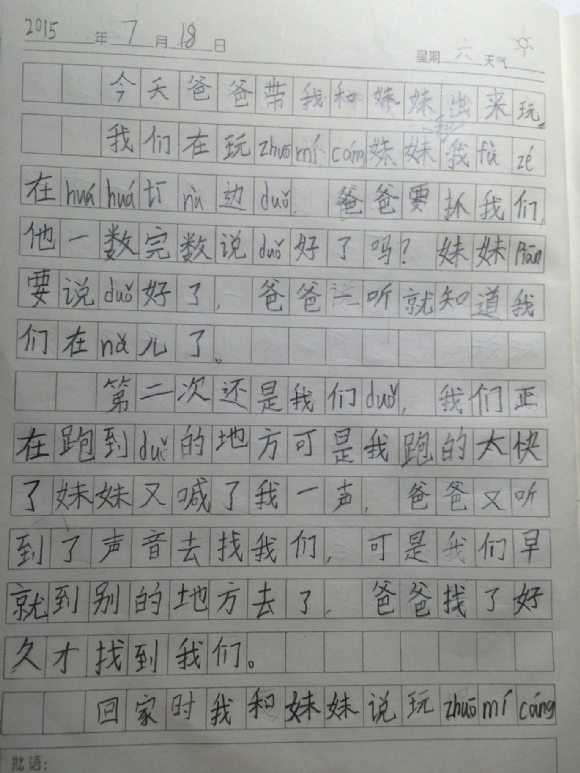 2015年7月18日 星期六天气
今天爸爸带我和妹妹出来玩。
我们在玩zhuōmícáng妹妹和我fù zé
在huá huá tī nà边duǒ，爸爸要抓我们，
他一数完数说duǒ好了吗？妹妹piān
要说duǒ好了，爸爸一听就知道我
们在nǎ儿了。
第二次还是我们duǒ，我们正
在跑到duǒ的地方可是我跑的太快
了妹妹又喊了我一声，爸爸又听
到了声音去找我们，可是我们早
就到别的地方去了，爸爸找了好
久才找到我们。
回家时我和妹妹说玩zhuōmícáng
批语：